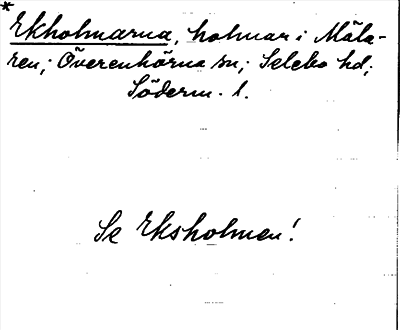 *
Ekholmarna, holmar i Mäla-
ren; Överenhörna sn; Selebo hd;
Söderm. l.
Se Eksholmen!